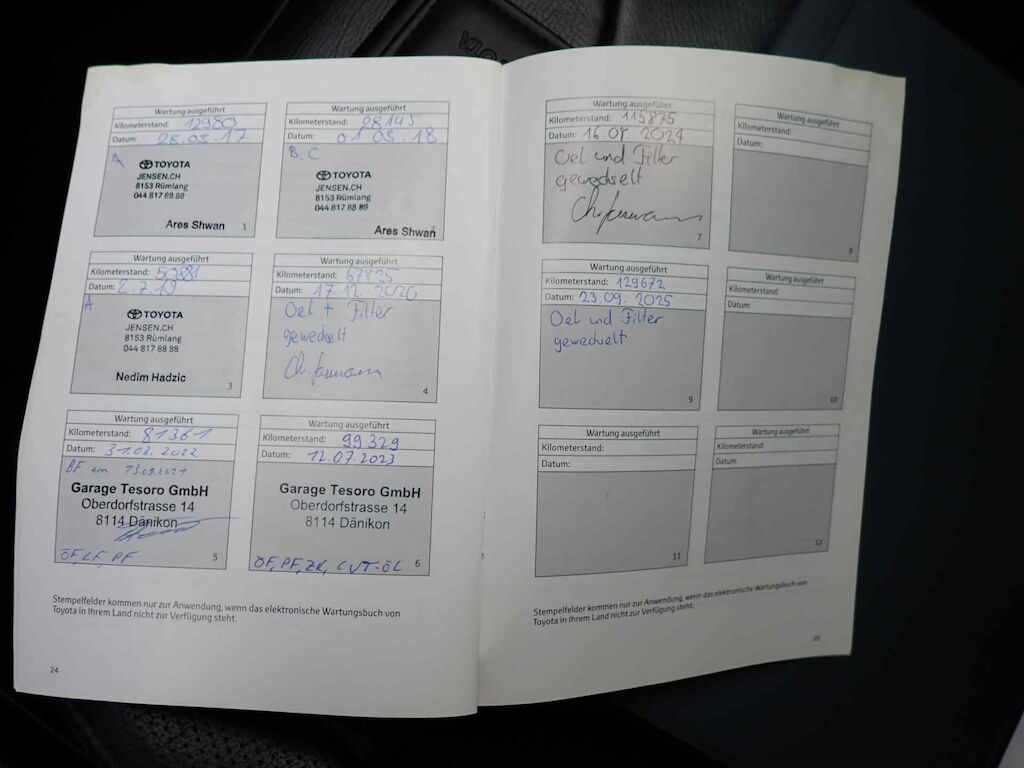 Wartung ausgeführt
Kilometerstand: 12980
Datum: 28.09.17
A
TOYOTA
JENSEN.CH
8153 Rümlang
044 817 88 88
Ares Shwan
1
Wartung ausgeführt
Kilometerstand: 28145
Datum: 01 09.18
B, C
TOYOTA
JENSEN.CH
8153 Rümlang
044 817 88 88
Ares Shwan
2
Wartung ausgeführt
Kilometerstand:
Datum: 2.7.19
A
TOYOTA
JENSEN.CH
8153 Rümlang
044 817 88 88
Nedim Hadzic
3
Wartung ausgeführt
Kilometerstand: 67825
Datum: 17.12.2020
Oel + Filter
gewechselt
4
Wartung ausgeführt
Kilometerstand: 81361
Datum: 31.03.2022
BF am 13.09.2021
Garage Tesoro GmbH
Oberdorfstrasse 14
8114 Dänikon
ÖF, LF, PF
5
Wartung ausgeführt
Kilometerstand: 99329
Datum: 12.07.2023
Garage Tesoro GmbH
Oberdorfstrasse 14
8114 Dänikon
ÖF, PF, ZK, CVT-ÖL
6
Stempelfelder kommen nur zur Anwendung, wenn das elektronische Wartungsbuch von
Toyota in Ihrem Land nicht zur Verfügung steht.
24
Wartung ausgeführt
Kilometerstand: 115875
Datum: 16.08.2024
Oel und Filter
gewechselt
7
Wartung ausgeführt
Kilometerstand:
Datum:
8
Wartung ausgeführt
Kilometerstand: 129672
Datum: 23.09.2025
Oel und Filter
gewechselt
9
Wartung ausgeführt
Kilometerstand:
Datum:
10
Wartung ausgeführt
Kilometerstand:
Datum:
11
Wartung ausgeführt
Kilometerstand:
Datum:
12
Stempelfelder kommen nur zur Anwendung, wenn das elektronische Wartungsbuch von
Toyota in Ihrem Land nicht zur Verfügung steht.
25